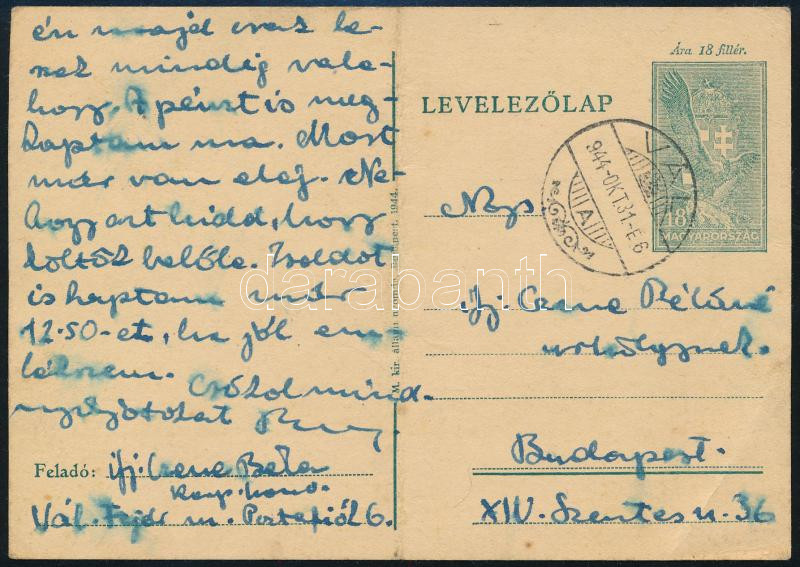 én majd eraz le-
nek mindig vala-
hogy. A pénzt is meg-
kaptam ma. Most
már van elég. Ne-
hogy azt hidd, hogy
költök belőle. Zsoldot
is kaptam már
12.50-et, ha jól em-
lékszem. Csókol mind-
nyájatokat
Feladó: ifj. Cerne Béla
karp. honv.
Vál. Fejér m. Postafiók 6.
M. kir. állami nyomda, Budapest. 1944.
Ára 18 fillér.
LEVELEZŐLAP
18
MAGYARORSZÁG
VÁL
944-OKT.31-E6
A
Ngs
ifj. Cerne Béláné
úrhölgynek.
Budapest.
XIV. Szentes u. 36
darabanth